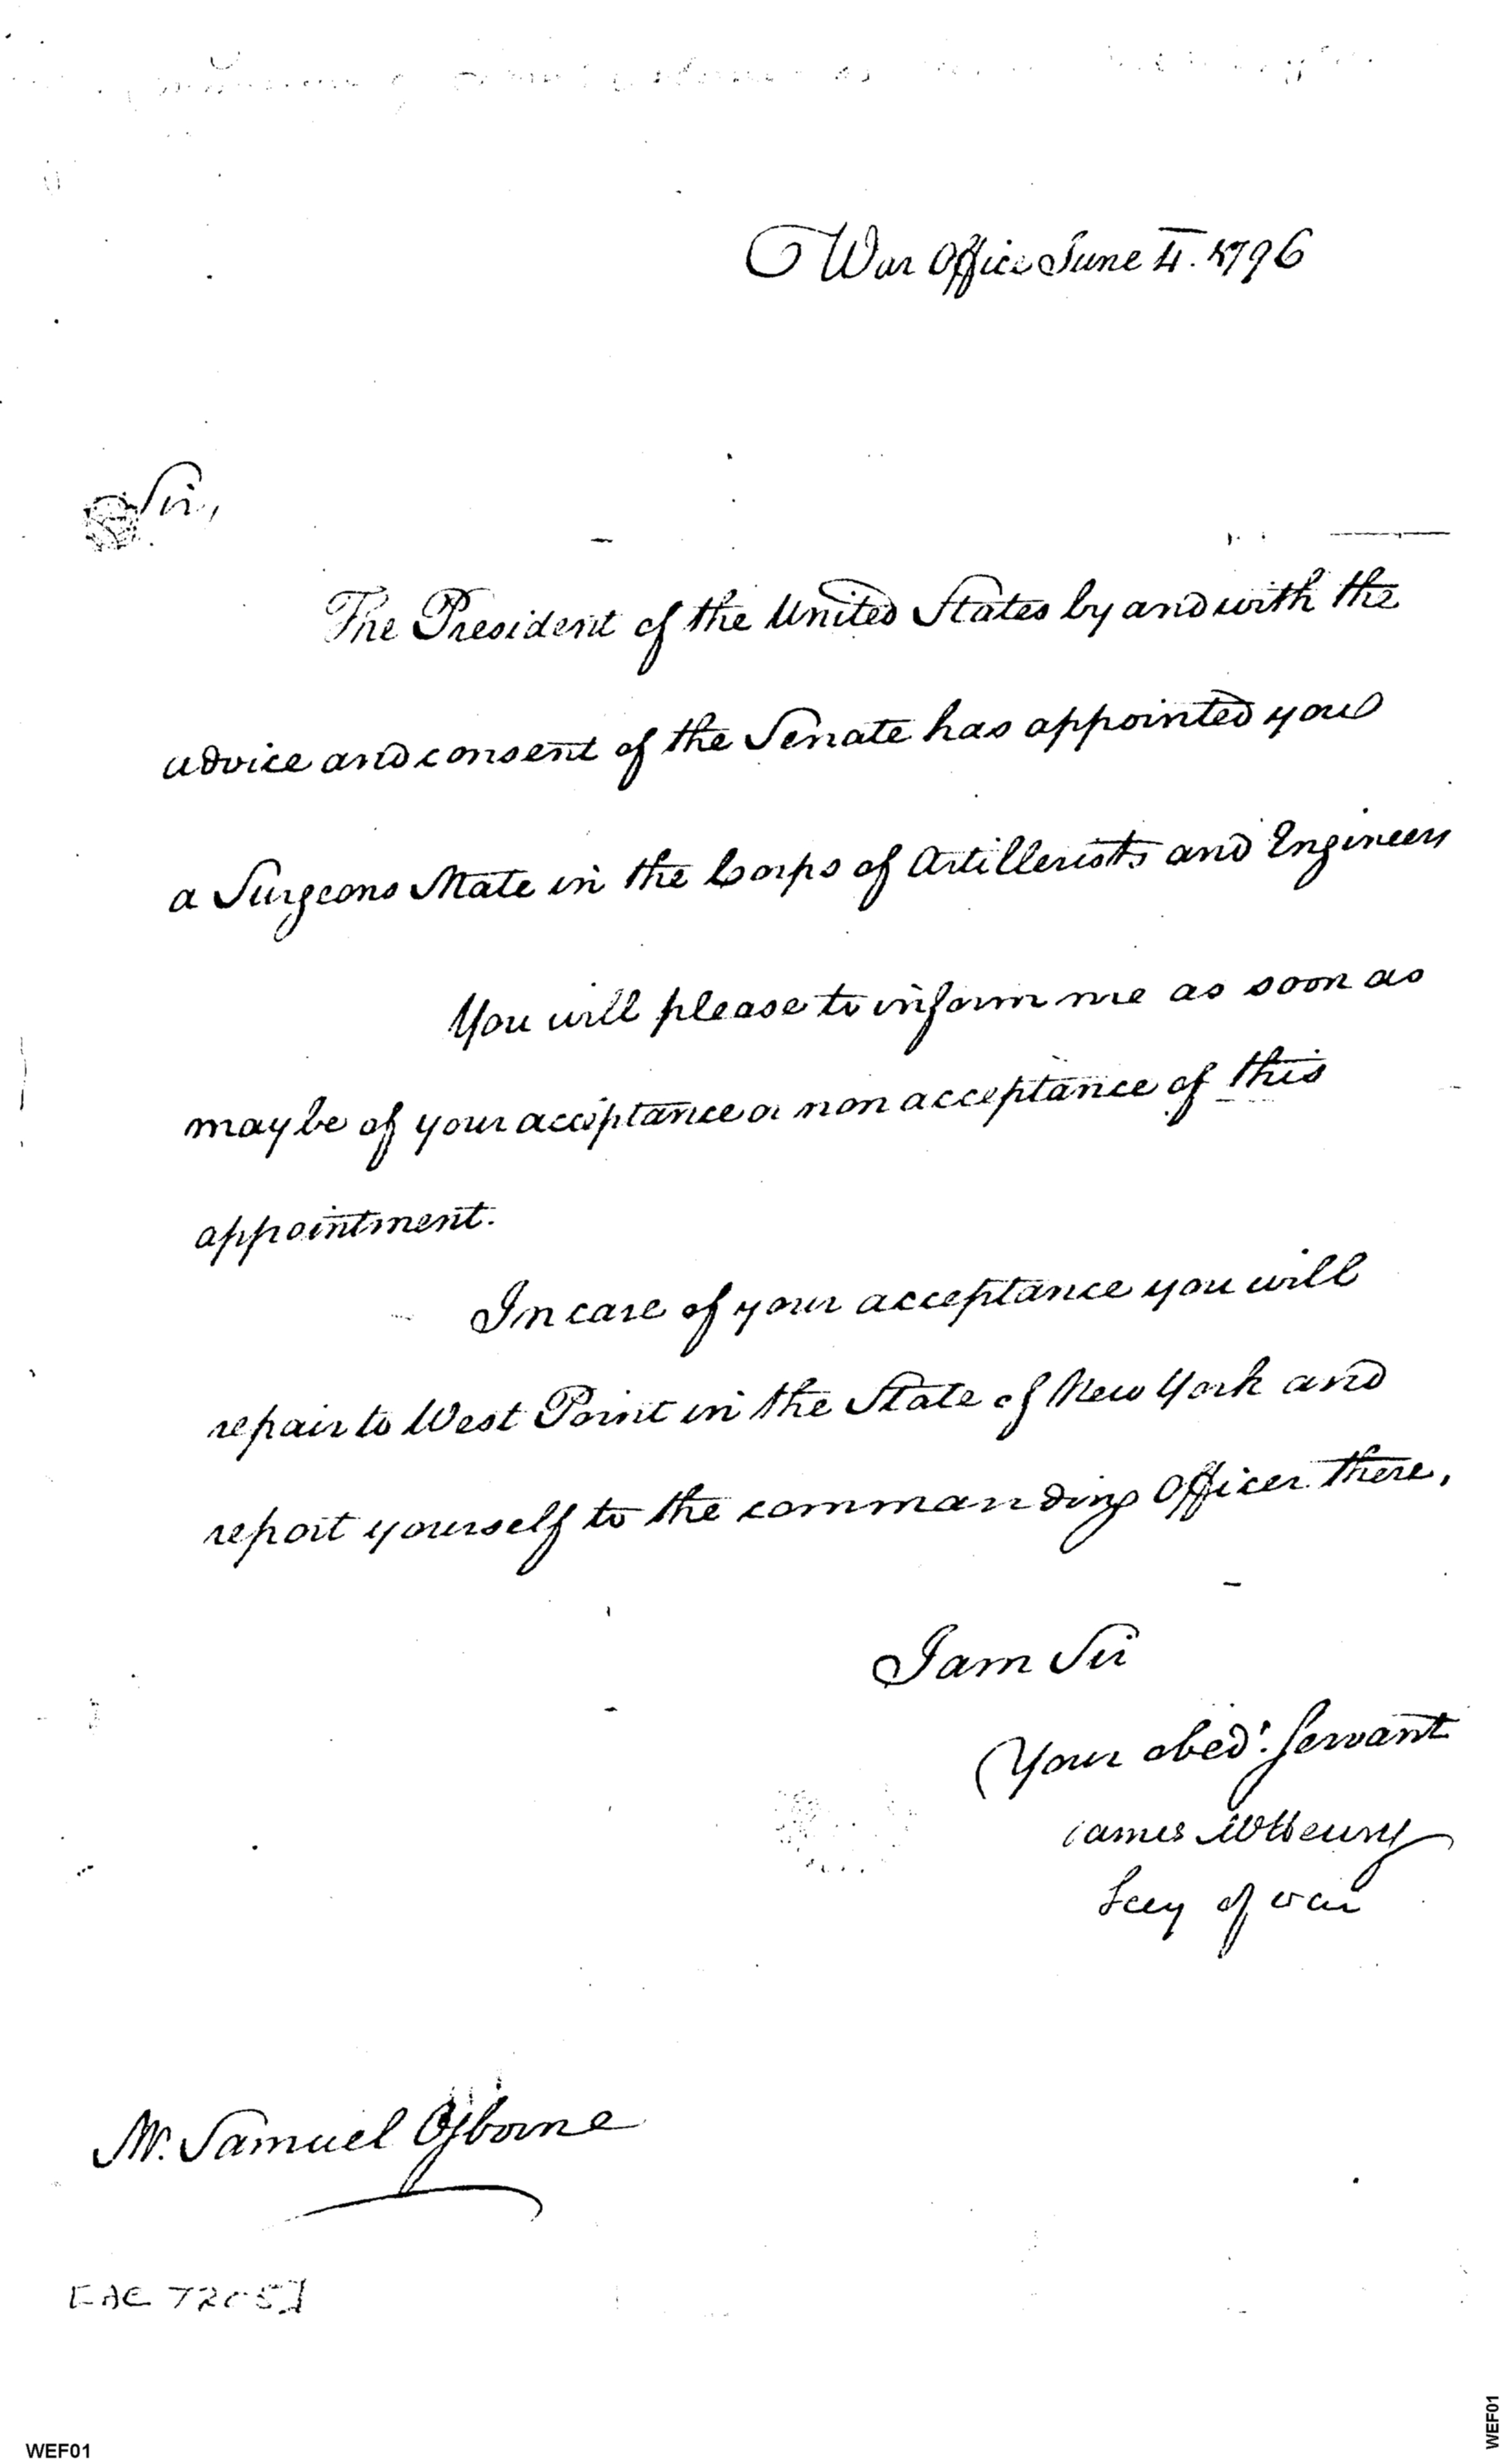 War Office June 4. 1796
Sir,
The President of the United States by and with the
advice and consent of the Senate has appointed you
a Surgeons Mate in the Corps of Artillerists and Engineers
You will please to inform me as soon as
may be of your acceptance or non acceptance of this
appointment.
In case of your acceptance you will
repair to West Point in the State of New York and
report yourself to the commanding Officer there,
I am Sir
Your obedt. Servant
James McHenry
Secy of war
Mr. Samuel Osborne
[AC 7205]
WEF01
WEF01